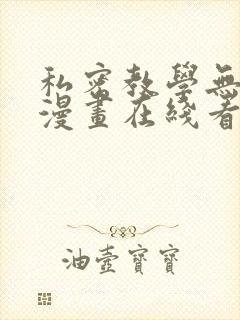 私密教學無
漫畫在綫看
油壺寶寶